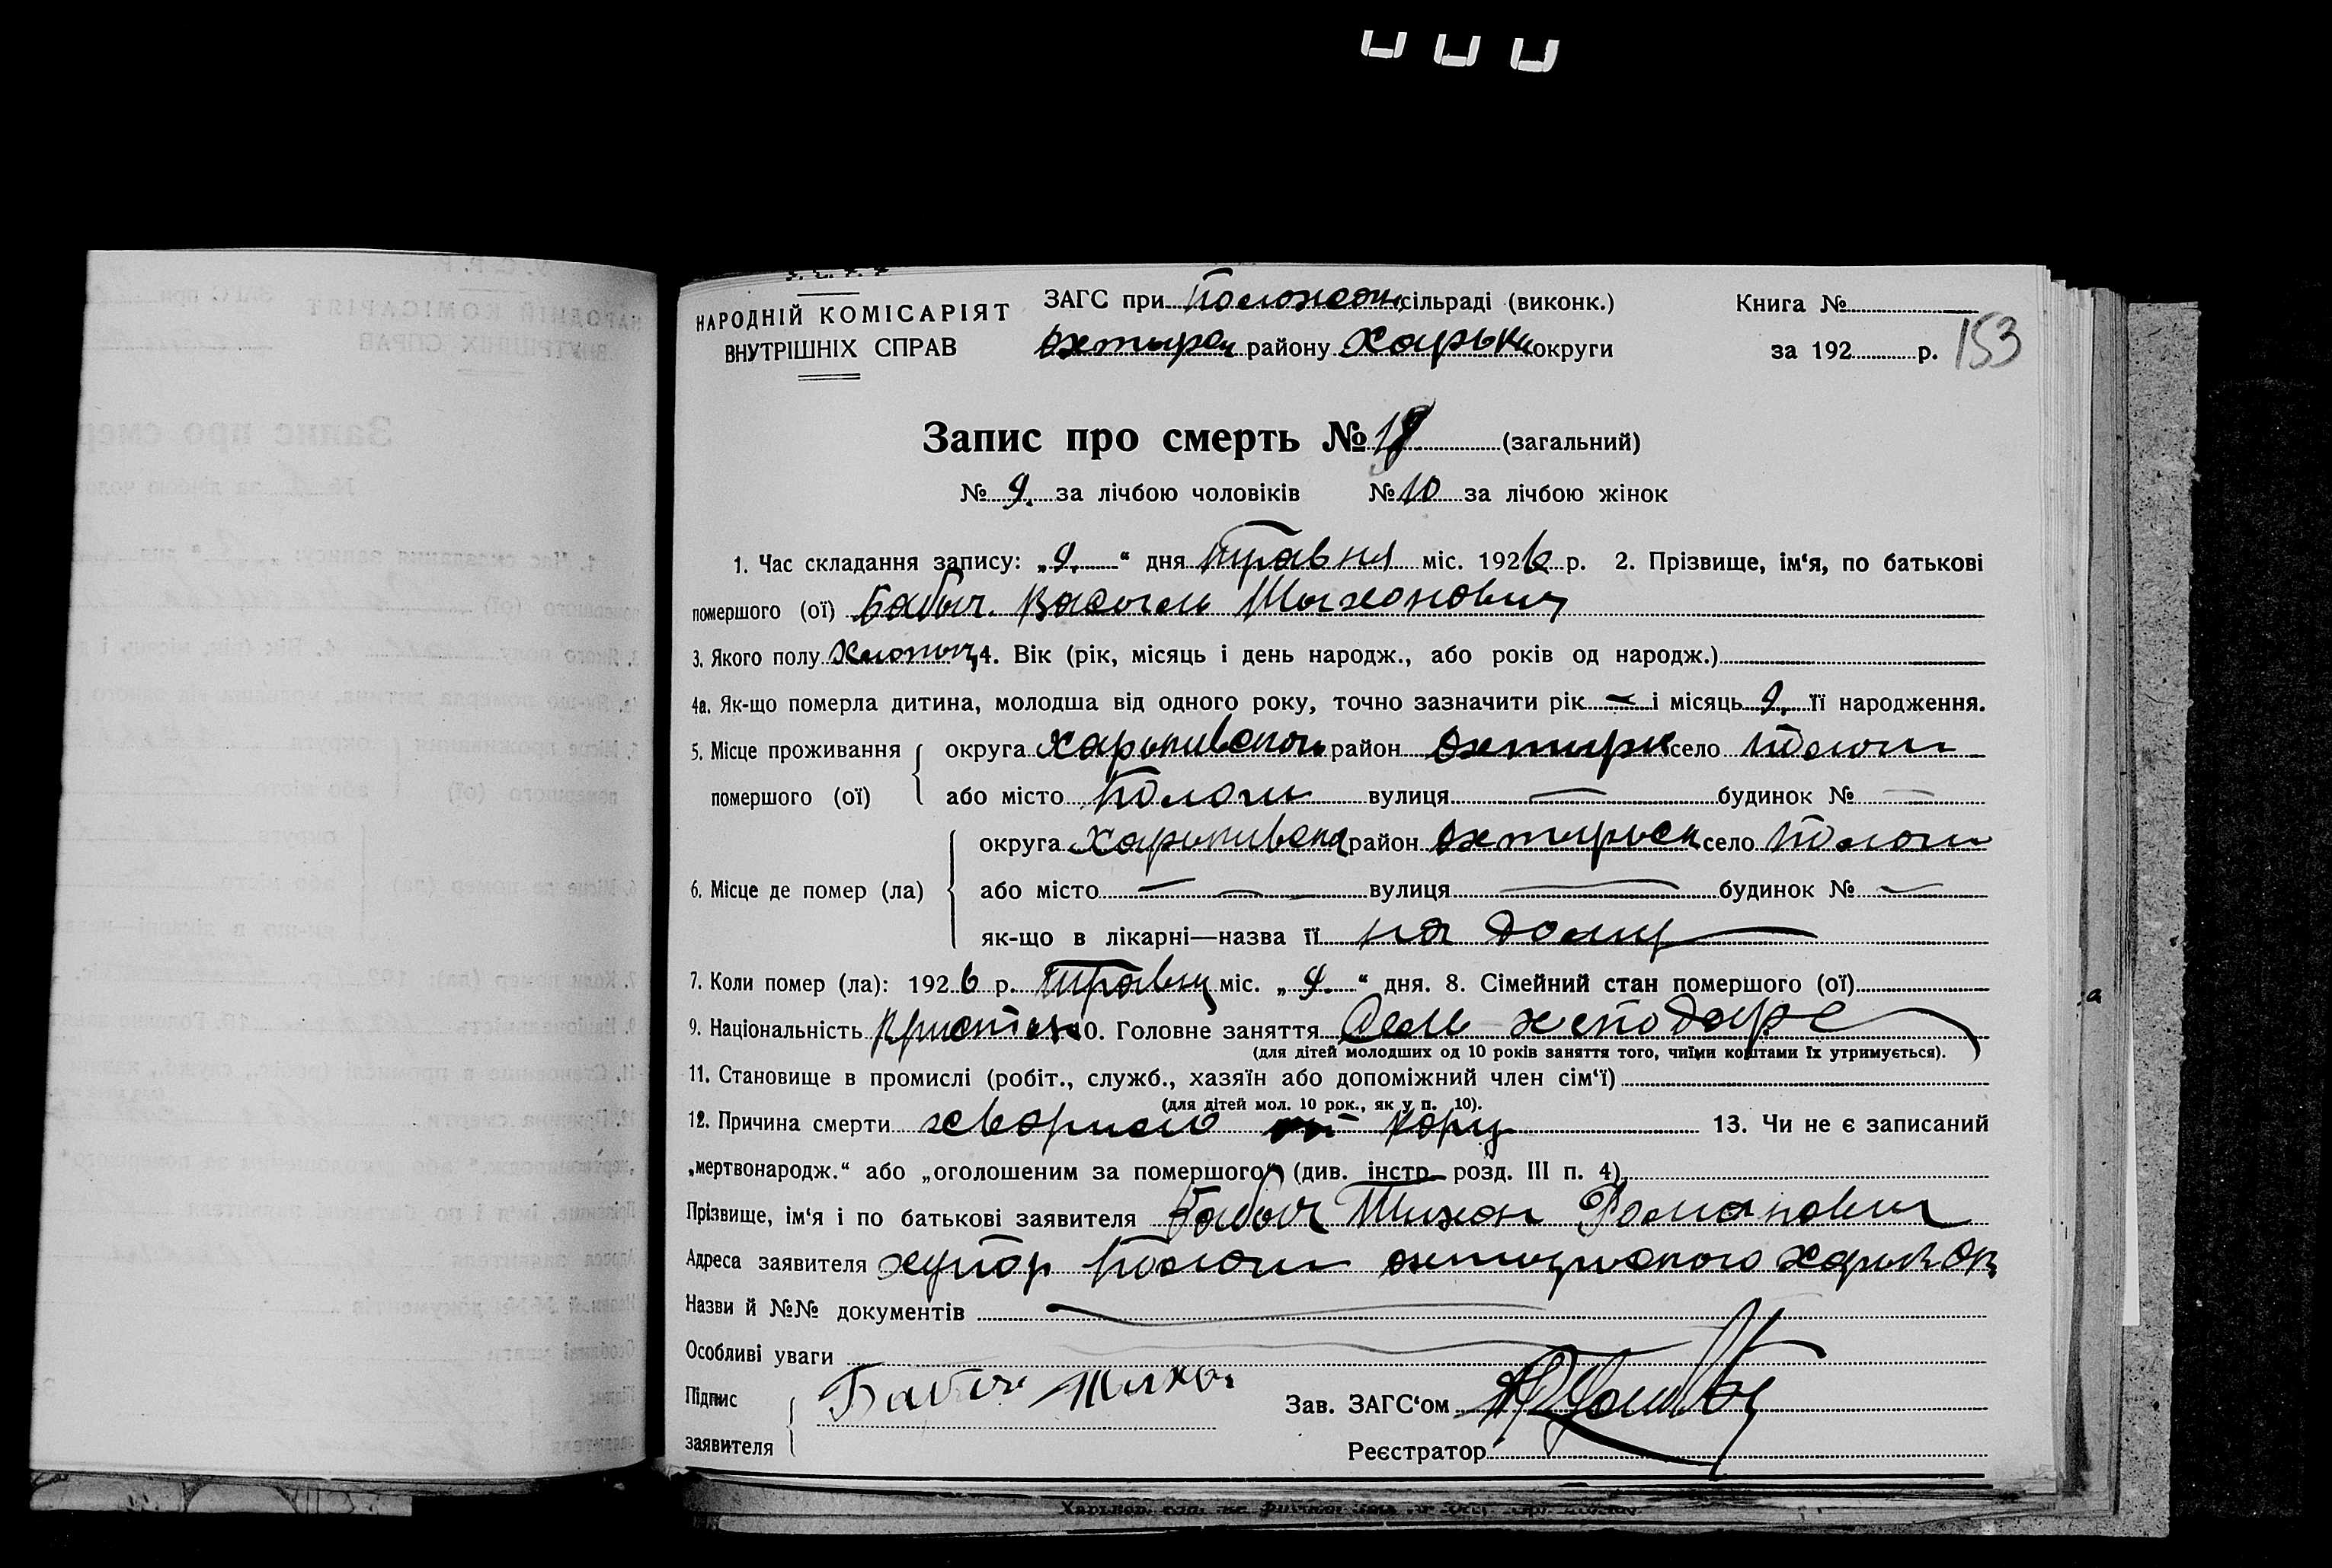 НАРОДНІЙ КОМІСАРІЯТ
ВНУТРІШНІХ СПРАВ
ЗАГС при сільраді (виконк.)
району округи
Книга №
за 192 р. 153
Запис про смерть № (загальний)
№ 9. за лічбою чоловіків № 10 за лічбою жінок
1. Час складання запису: „9.“ дня травня міс. 1926 р. 2. Прізвище, ім‘я, по батькові
помершого (ої) Бабич Василь Тихонович
3. Якого полу хлопчик 4. Вік (рік, місяць і день народж., або років од народж.)
4а. Як-що померла дитина, молодша від одного року, точно зазначити рік — і місяць 9. її народження.
5. Місце проживання округа район село Пологи
помершого (ої) або місто Пологи вулиця — будинок № —
округа район село Пологи
6. Місце де помер (ла) або місто — — вулиця — будинок № —
як-що в лікарні—назва її на дому
7. Коли помер (ла): 1926 р. міс. „9.“ дня. 8. Сімейний стан помершого (ої)
9. Національність 10. Головне заняття
(для дітей молодших од 10 років заняття того, чиїми коштами їх утримується).
11. Становище в промислі (робіт., служб., хазяїн або допоміжний член сім‘ї)
(для дітей мол. 10 рок., як у п. 10).
12. Причина смерти кору 13. Чи не є записаний
„мертвонародж.“ або „оголошеним за помершого“ (див. інстр. розд. III п. 4)
Прізвище, ім‘я і по батькові заявителя Бабич Тихон Романович
Адреса заявителя хутор Пологи
Назви й №№ документів
Особливі уваги
Підпис
заявителя
Бабич Тихон
Зав. ЗАГС‘ом
Реєстратор